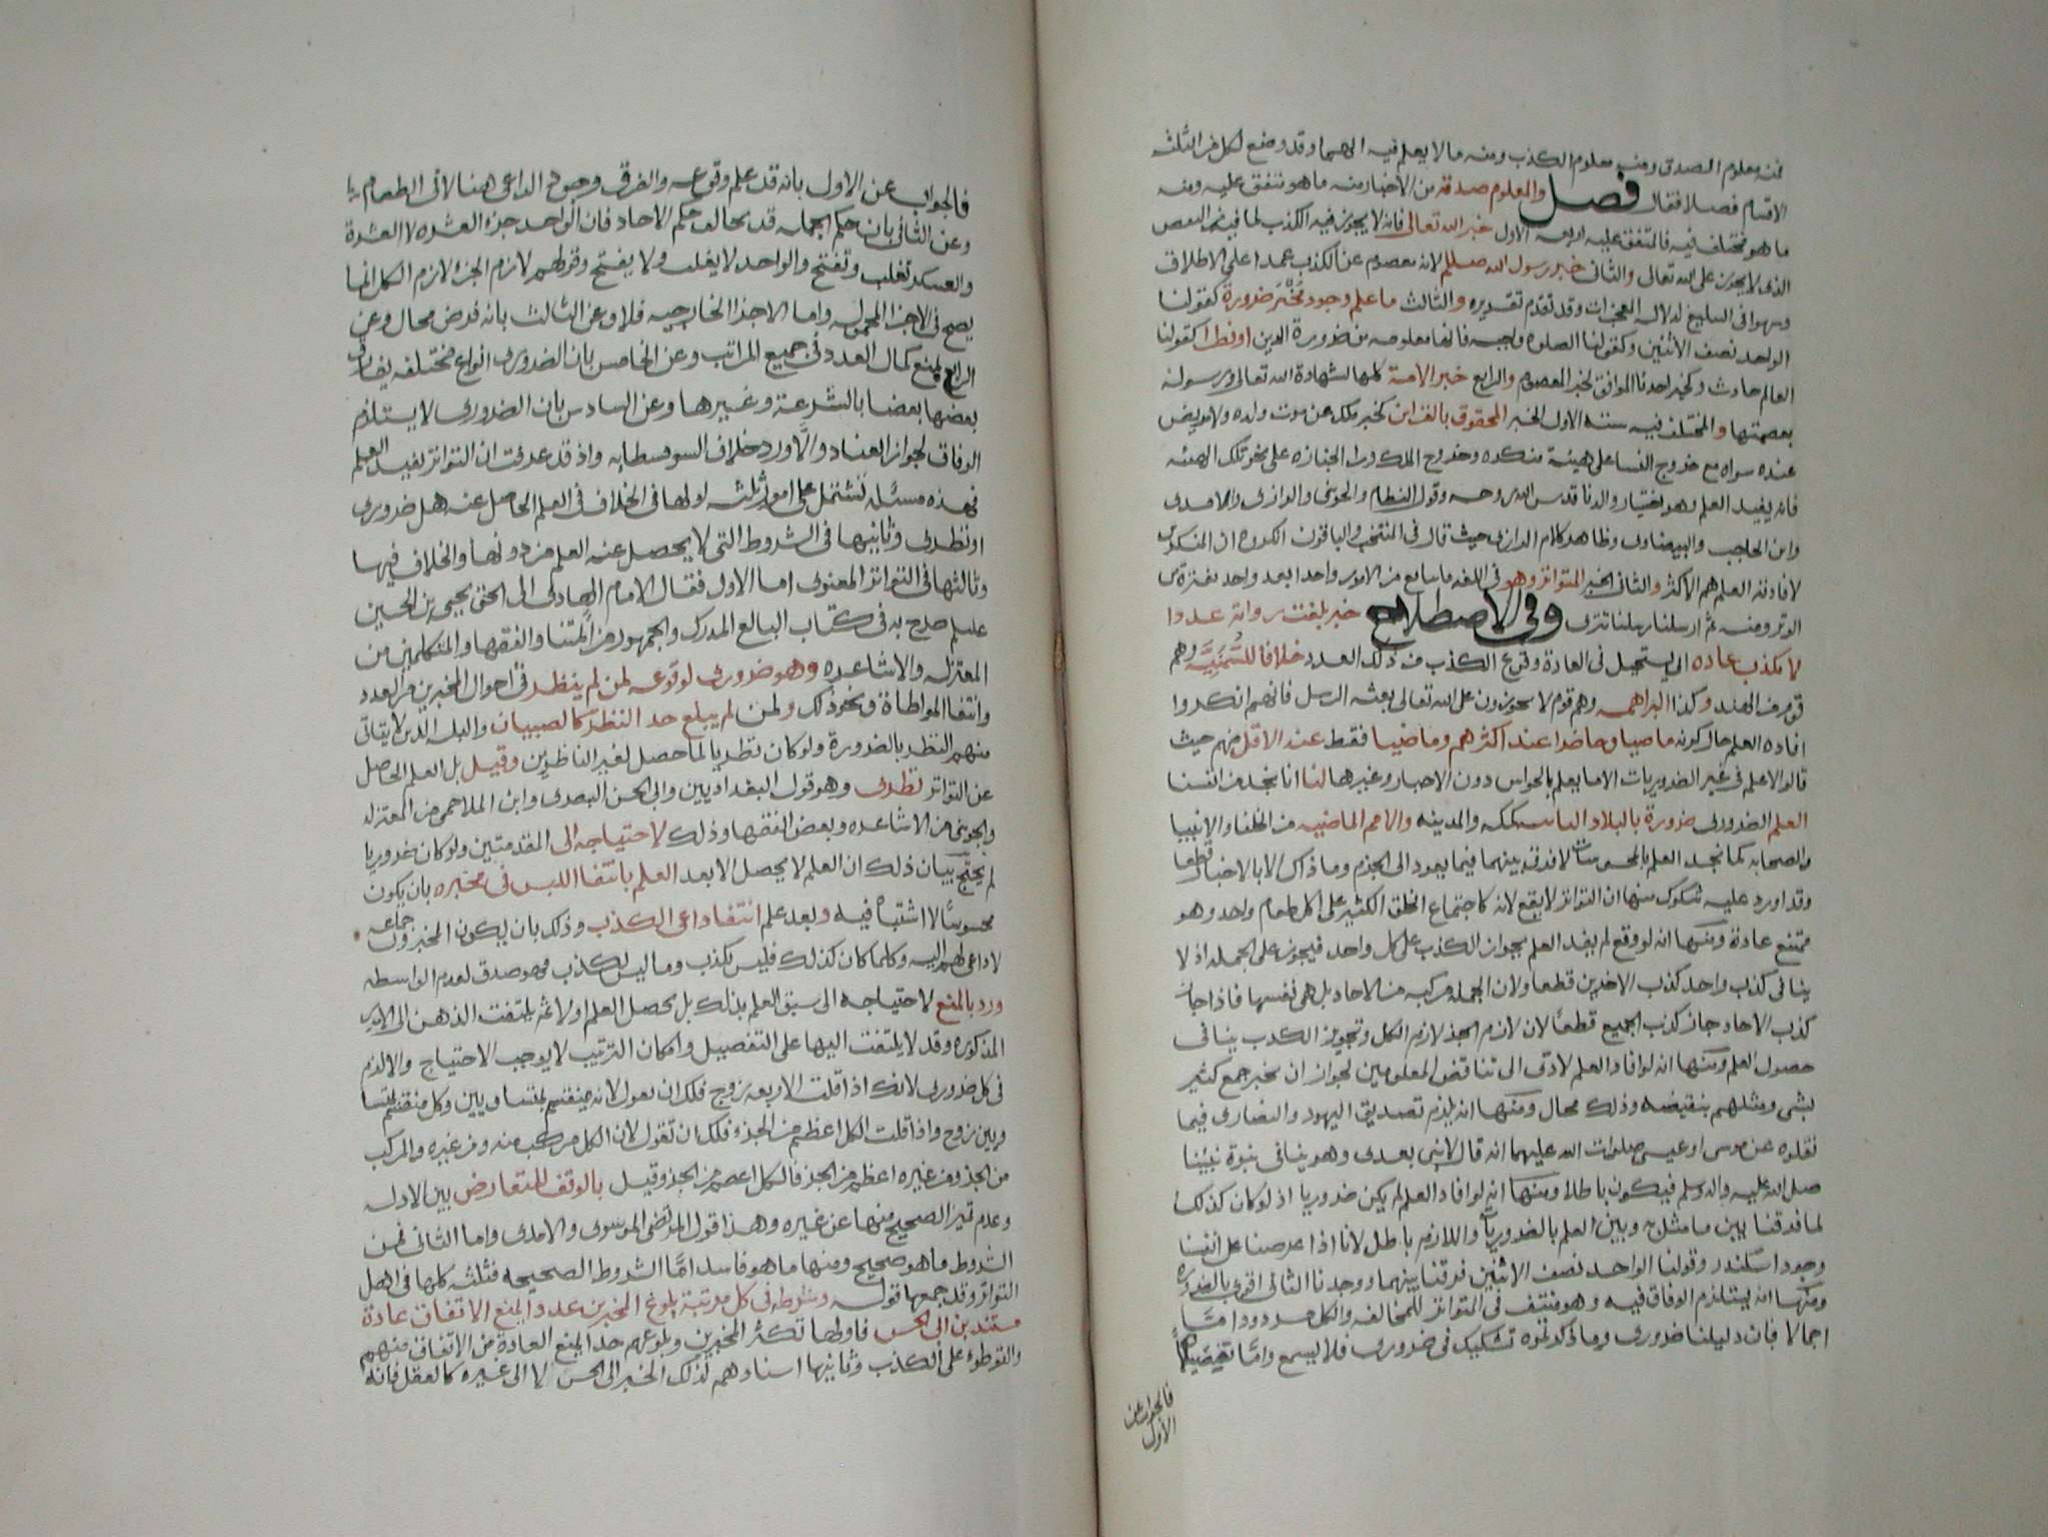 فمنه معلوم الصدق ومنه معلوم الكذب ومنه ما لا يعلم فيه ايهما وقد وضع لكل من الثلثة
الاقسام فصلا فقال فصل والمعلوم صدقه من الاخبار منه ما هو متفق عليه ومنه
ما هو مختلف فيه فالمتفق عليه اربعة الاول خبر الله تعالى فانه لا يجوز فيه الكذب لما فيه من النقص
الذي لا يجوز على الله تعالى والثاني خبر رسول الله صلعلم لانه معصوم عن الكذب عمدا على الاطلاق
وسهوا في التبليغ لدلالة المعجزات وقد تقدم تقديره والثالث ما علم وجود مخبره ضرورة كقولنا
الواحد نصف الاثنين وكقولنا الصلوة واجبه فانها معلومه من ضرورة الدين او نظرا كقولنا
العالم حادث وكخبر احدنا الموافق لخبر المعصوم والرابع خبر الامة كلها لشهادة الله تعالى ورسوله
بعصمتها والمختلف فيه ستة الاول الخبر المحفوف بالقراين كخبر ملك عن موت ولده ولا مريض
عنده سواه مع خروج النسا على هيئة منكره وخروج الملك ورا الجنازه على نحو تلك الهيئه
فانه يفيد العلم وهو اختيار والدنا قدس الله روحه وقول النظام والجويني والرازي والامدي
وابن الحاجب والبيضاوي وظاهر كلام الرازي حيث قال في المنتخب والباقون انكروه ان المنكرين
لافادته العلم هم الاكثر والثاني الخبر المتواتر وهو في اللغه ما تتابع من الامور واحدا بعد واحد بفترة من
الوتر ومنه ثم ارسلنا رسلنا تترى وفي الاصطلاح خبر بلغت رواته عددا
لا يكذب عاده اي يستحيل في العادة وقوع الكذب من ذلك العدد خلافا للسُّمَنِيَّه وهم
قوم من الهند وكذا البراهمه وهم قوم لا يجوزون على الله تعالى بعثه الرسل فانهم انكروا
افاده العلم حال كونه ماضيا وحاضرا عند اكثرهم وماضيا فقط عند الاقل منهم حيث
قالوا لا علم في غير الضروريات الا ما يعلم بالحواس دون الاخبار وغيرها لنا انا نجد من انفسنا
العلم الضروري ضرورة بالبلاد النائيه كمكه والمدينه والامم الماضيه من الخلفا والانبيا
والصحابه كما نجد العلم بالمحسوسات لا فرق بينهما فيما يعود الى الجزم وما ذاك الا بالاخبار قطعا
وقد اورد عليه شكوك منها ان التواتر لا يقع لانه كاجتماع الخلق الكثير على اكل طعام واحد وهو
ممتنع عادة ومنها انه لو وقع لم يفد العلم بجواز الكذب على كل واحد فيجوز على الجمله اذ لا
ينافي كذب واحد كذب الاخرين قطعا ولان الجمله مركبه من الاحاد بل هي نفسها فاذا جاز
كذب الاحاد جاز كذب الجميع قطعًا لان لازم الجزء لازم الكل وتجويز الكذب ينافي
حصول العلم ومنها انه لو افاد العلم لادّى الى تناقض المعلومين لجواز ان يخبر جمع كثير
بشي ومثلهم بنقيضه وذلك محال ومنها انه يلزم تصديق اليهود والنصارى فيما
نقلوه عن موسى او عيسى صلوات الله عليهما انه قال لا نبي بعدي وهو ينافي نبوة نبينا
صلى الله عليه واله وسلم فيكون باطلا ومنها انه لو افاد العلم لم يكن ضروريا اذ لو كان كذلك
لما فرقنا بين ما مثلتم وبين العلم بالضروريات واللازم باطل لانا اذا عرضنا على انفسنا
وجود اسكندر وقولنا الواحد نصف الاثنين فرقنا بينهما ووجدنا الثاني اقوى بالضرورة
ومنها انه يستلزم الوفاق فيه وهو منتف في المتواتر للمخالفه والكل مردود امّا
اجمالا فبان دليلنا ضروري وما ذكرتموه تشكيك في ضروري فلا يسمع وامّا تفصيلًا
فالجواب عن
الاول
فالجواب عن الاول بانه قد علم وقوعه والفرق وجود الداعي هنا لا في الطعام
وعن الثاني بان حكم الجمله قد يخالف حكم الاحاد فان الواحد جزء العشره لا العشرة
والعسكر تغلب وتفتح والواحد لا يغلب ولا يفتح وقولهم لازم الجزء لازم الكل انما
يصح في الاجزا المحموله واما الاجزا الخارجيه فلا وعن الثالث بانه فرض محال وعن
الرابع بمنع كمال العدد في جميع المراتب وعن الخامس بان الضروري انواع مختلفه يفارق
بعضها بعضا بالسرعة وغيرها وعن السادس بان الضروري لا يستلزم
الوفاق لجواز العناد والّا ورد خلاف السوفسطايه واذ قد عرفت ان التواتر يفيد العلم
فهذه مسئله تشتمل على امور ثلثه اولها في الخلاف في العلم الحاصل عنه هل ضروري
او نظري وثانيها في الشروط التي لا يحصل عنه العلم من دونها والخلاف فيها
وثالثها في التواتر المعنوي اما الاول فقال الامام الهادي الى الحق يحيى بن الحسين
عليلم صرح به في كتاب البالغ المدرك والجمهور من ائمتنا والفقها والمتكلمين من
المعتزله والاشاعره وهو ضروري لوقوعه لمن لم ينظر في احوال المخبرين من العدد
وانتفا المواطاة ونحو ذلك ولمن لم يبلغ حد النظر كالصبيان والبله الذين لا يتاتى
منهم النظر بالضرورة ولو كان نظريا لما حصل لغير الناظرين وقيل بل العلم الحاصل
عن التواتر نظري وهو قول البغداديين وابي الحسن البصري وابن الملاحمي من المعتزله
والجويني من الاشاعره وبعض الفقها وذلك لاحتياجه الى المقدمتين ولو كان ضروريا
لم يحتج بيان ذلك ان العلم لا يحصل الا بعد العلم بانتفا اللبس في مخبره بان يكون
محسوسًا لا اشتباه فيه وبعد علم انتفا داعي الكذب وذلك بان يكون المخبرون جماعه
لا داعي لهم اليه وكلما كان كذلك فليس بكذب وما ليس بكذب فهو صدق لعدم الواسطه
ورد بالمنع لاحتياجه الى سبق العلم بذلك بل يحصل العلم اولا ثم يلتفت الذهن الى الامور
المذكوره وقد لا يلتفت اليها على التفصيل وامكان الترتيب لا يوجب الاحتياج والا لزم
في كل ضروري لانك اذا قلت الاربعه زوج فلك ان تقول لانه منقسم بمتساويين وكل منقسم بمتسا
ويين زوج واذا قلت الكل اعظم من الجزء فلك ان تقول لان الكل مركب منه ومن غيره والمركب
من الجزء ومن غيره اعظم من الجزء فالكل اعظم من الجزء وقيل بالوقف للتعارض بين الادله
وعدم تميز الصحيح منها عن غيره وهذا قول المرتضى الموسوي والامدي واما الثاني فمن
الشروط ما هو صحيح ومنها ما هو فاسد امّا الشروط الصحيحه فثلثه كلها في اهل
التواتر وقد جمعها قوله وشرطه في كل مرتبة بلوغ المخبرين عددا يمنع الاتفاق عادة
مستندين الى الحس فاولها تكثر المخبرين وبلوغهم حدا يمنع العادة من الاتفاق منهم
والتوطؤ على الكذب وثانيها اسنادهم لذلك الخبر الى الحس لا الى غيره كالعقل فانه